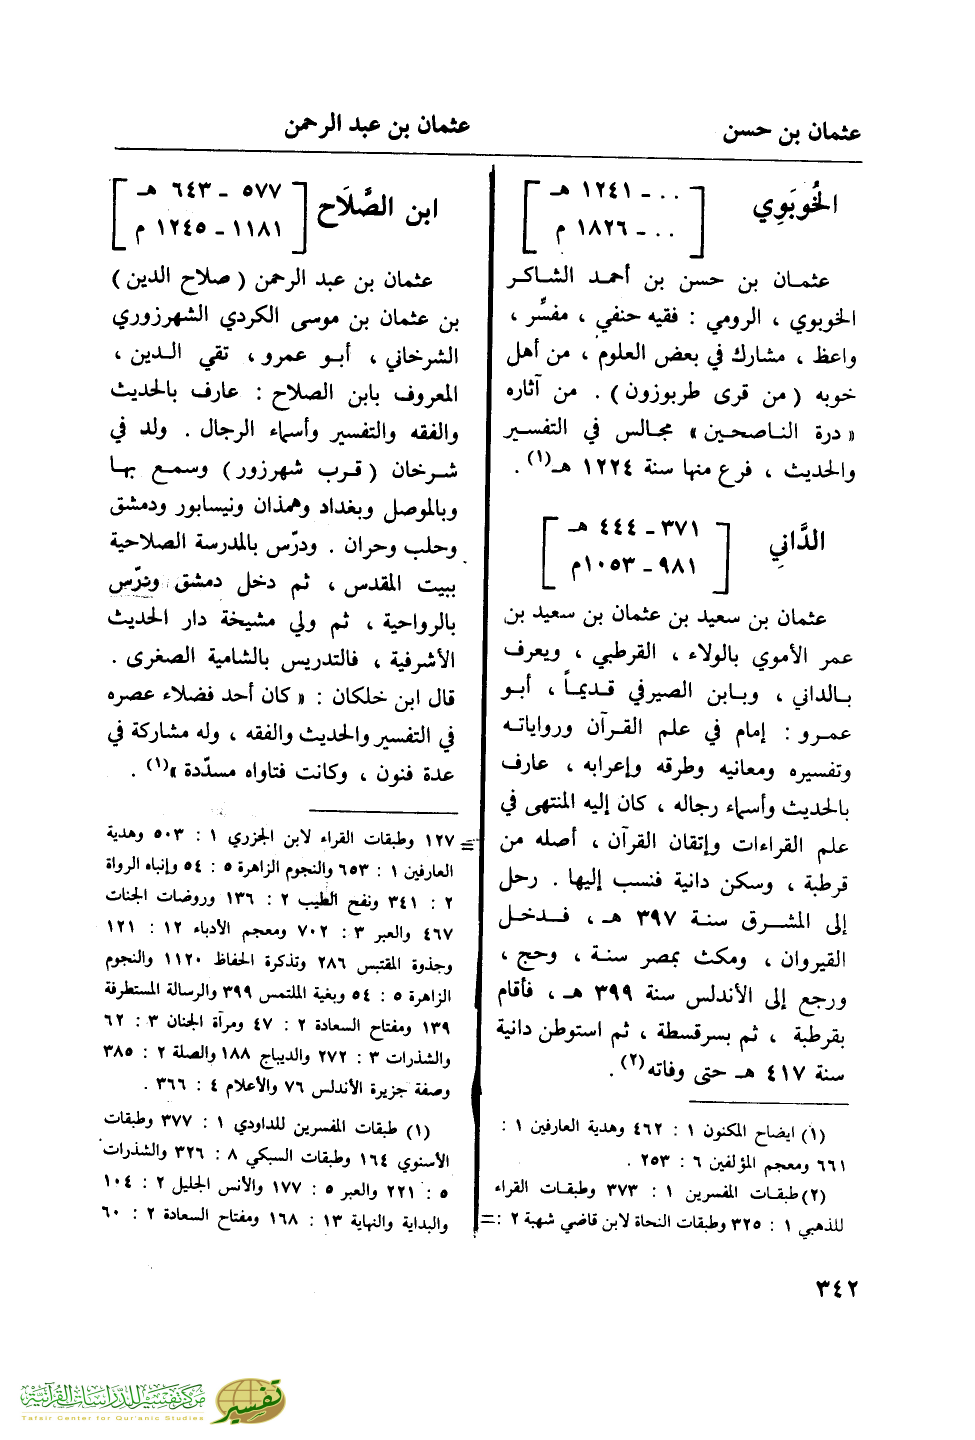 عثمان بن حسن
عثمان بن عبد الرحمن
الخُوبَوِي
[ .. ـ ١٢٤١ هـ
.. ـ ١٨٢٦ م ]
عثمان بن حسن بن أحمد الشاكر
الخوبوي ، الرومي : فقيه حنفي ، مفسِّر ،
واعظ ، مشارك في بعض العلوم ، من أهل
خوبه ( من قرى طربوزون ) . من آثاره
« درة الناصحين » مجالس في التفسير
والحديث ، فرغ منها سنة ١٢٢٤ هـ(١) .
الدَّانِي
[ ٣٧١ ـ ٤٤٤ هـ
٩٨١ ـ ١٠٥٣م ]
عثمان بن سعيد بن عثمان بن سعيد بن
عمر الأموي بالولاء ، القرطبي ، ويعرف
بالداني ، وبابن الصيرفي قديماً ، أبو
عمرو : إمام في علم القرآن ورواياته
وتفسيره ومعانيه وطرقه وإعرابه ، عارف
بالحديث وأسماء رجاله ، كان إليه المنتهى في
علم القراءات وإتقان القرآن ، أصله من
قرطبة ، وسكن دانية فنسب إليها . رحل
إلى المشرق سنة ٣٩٧ هـ ، فدخل
القيروان ، ومكث بمصر سنة ، وحج ،
ورجع إلى الأندلس سنة ٣٩٩ هـ ، فأقام
بقرطبة ، ثم بسرقسطة ، ثم استوطن دانية
سنة ٤١٧ هـ حتى وفاته(٢) .
(١) ايضاح المكنون ١ : ٤٦٢ وهدية العارفين ١ :
٦٦١ ومعجم المؤلفين ٦ : ٢٥٣ .
(٢) طبقات المفسرين ١ : ٣٧٣ وطبقات القراء
للذهبي ١ : ٣٢٥ وطبقات النحاة لابن قاضي شهبة ٢ : =
ابن الصَّلَاح
[ ٥٧٧ ـ ٦٤٣ هـ
١١٨١ ـ ١٢٤٥ م ]
عثمان بن عبد الرحمن ( صلاح الدين )
بن عثمان بن موسى الكردي الشهرزوري
الشرخاني ، أبو عمرو ، تقي الدين ،
المعروف بابن الصلاح : عارف بالحديث
والفقه والتفسير وأسماء الرجال . ولد في
شرخان ( قرب شهرزور ) وسمع بها
وبالموصل وبغداد وهمذان ونيسابور ودمشق
وحلب وحران . ودرّس بالمدرسة الصلاحية
ببيت المقدس ، ثم دخل دمشق ودرّس
بالرواحية ، ثم ولي مشيخة دار الحديث
الأشرفية ، فالتدريس بالشامية الصغرى .
قال ابن خلكان : « كان أحد فضلاء عصره
في التفسير والحديث والفقه ، وله مشاركة في
عدة فنون ، وكانت فتاواه مسدّدة »(١) .
= ١٢٧ وطبقات القراء لابن الجزري ١ : ٥٠٣ وهدية
العارفين ١ : ٦٥٣ والنجوم الزاهرة ٥ : ٥٤ وإنباه الرواة
٢ : ٣٤١ ونفح الطيب ٢ : ١٣٦ وروضات الجنات
٤٦٧ والعبر ٣ : ٧٠٢ ومعجم الأدباء ١٢ : ١٢١
وجذوة المقتبس ٢٨٦ وتذكرة الحفاظ ١١٢٠ والنجوم
الزاهرة ٥ : ٥٤ وبغية الملتمس ٣٩٩ والرسالة المستطرفة
١٣٩ ومفتاح السعادة ٢ : ٤٧ ومرآة الجنان ٣ : ٦٢
والشذرات ٣ : ٢٧٢ والديباج ١٨٨ والصلة ٢ : ٣٨٥
وصفة جزيرة الأندلس ٧٦ والأعلام ٤ : ٣٦٦ .
(١) طبقات المفسرين للداودي ١ : ٣٧٧ وطبقات
الأسنوي ١٦٤ وطبقات السبكي ٨ : ٣٢٦ والشذرات
٥ : ٢٢١ والعبر ٥ : ١٧٧ والأنس الجليل ٢ : ١٠٤
والبداية والنهاية ١٣ : ١٦٨ ومفتاح السعادة ٢ : ٦٠
٣٤٢
مركز تفسير للدراسات القرآنية
Tafsir Center for Qur'anic Studies
تفسير